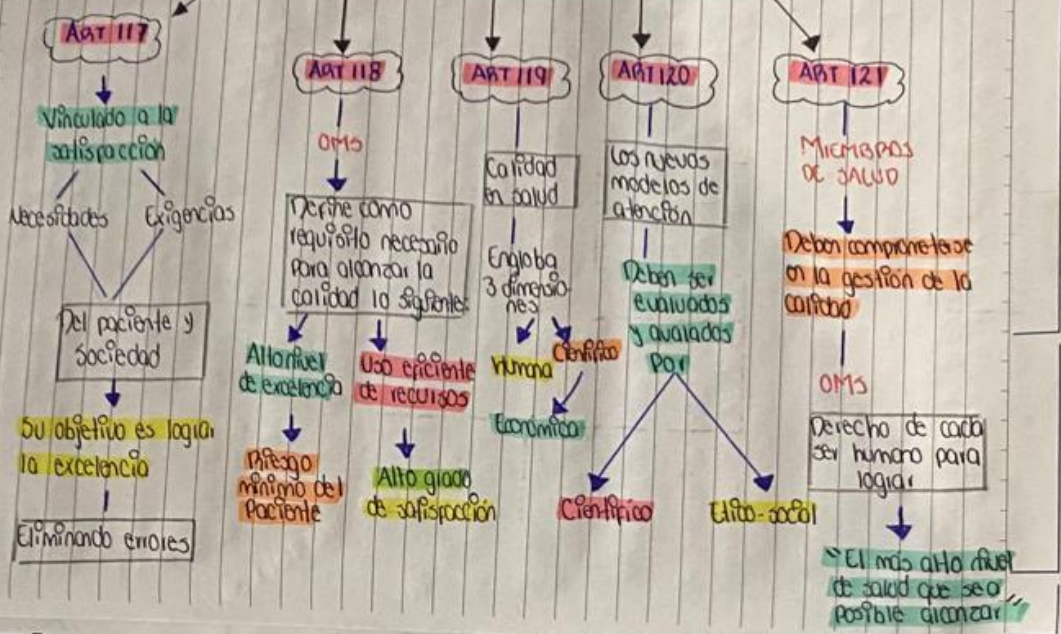 ART 117
Vinculado a la
satisfacción
Necesidades
Exigencias
Del paciente y
sociedad
Su objetivo es lograr
la excelencia
Eliminando errores
ART 118
OMS
Define como
requisito necesario
para alcanzar la
calidad lo siguiente:
Alto nivel
de excelencia
Riesgo
mínimo del
Paciente
Uso eficiente
de recursos
Alto grado
de satisfacción
ART 119
Calidad
en salud
Engloba
3 dimensio
nes
Humana
Científico
Económica
ART 120
Los nuevos
modelos de
atención
Deben ser
evaluados
y avalados
Por
Científico
Etico-social
ART 121
MIEMBROS
DE SALUD
Deben comprometerse
en la gestión de la
calidad
OMS
Derecho de cada
ser humano para
lograr
"El más alto nivel
de salud que sea
posible alcanzar"